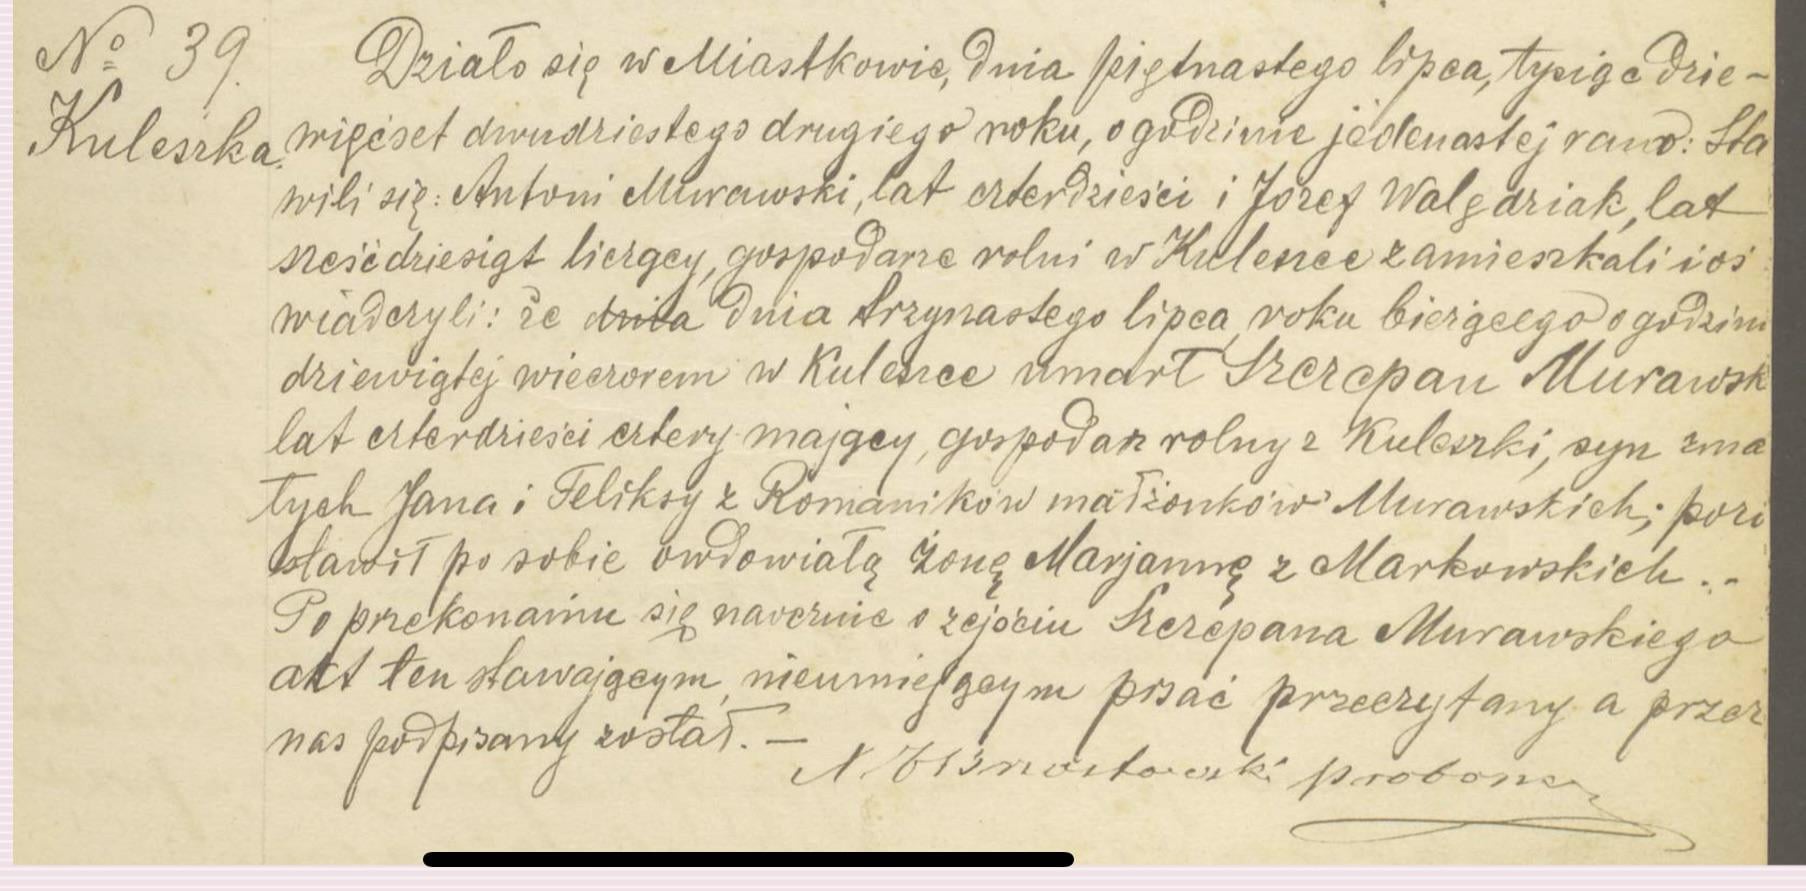 No 39.
Kuleszka.
Działo się w Miastkowie, dnia piętnastego lipca, tysiąc dzie-
więćset dwudziestego drugiego roku, o godzinie jedenastej rano: Sta
wili się: Antoni Murawski, lat czterdzieści i Józef Walędziak, lat
sześćdziesiąt liczący, gospodarze rolni w Kuleszce zamieszkali i oś
wiadczyli: że dnia dnia trzynastego lipca, roku bieżącego o godzini
dziewiątej wieczorem w Kuleszce umarł Szczepan Murawsk
lat czterdzieści cztery mający, gospodarz rolny z Kuleszki, syn zma
łych Jana i Feliksy z Romaników małżonków Murawskich; pozo
stawił po sobie owdowiałą żonę Marjannę z Markowskich.-
Po przekonaniu się naocznie o zejściu Szczepana Murawskiego
akt ten stawającym, nieumiejącym pisać przeczytany a przez
nas podpisany został. —
proboszcz